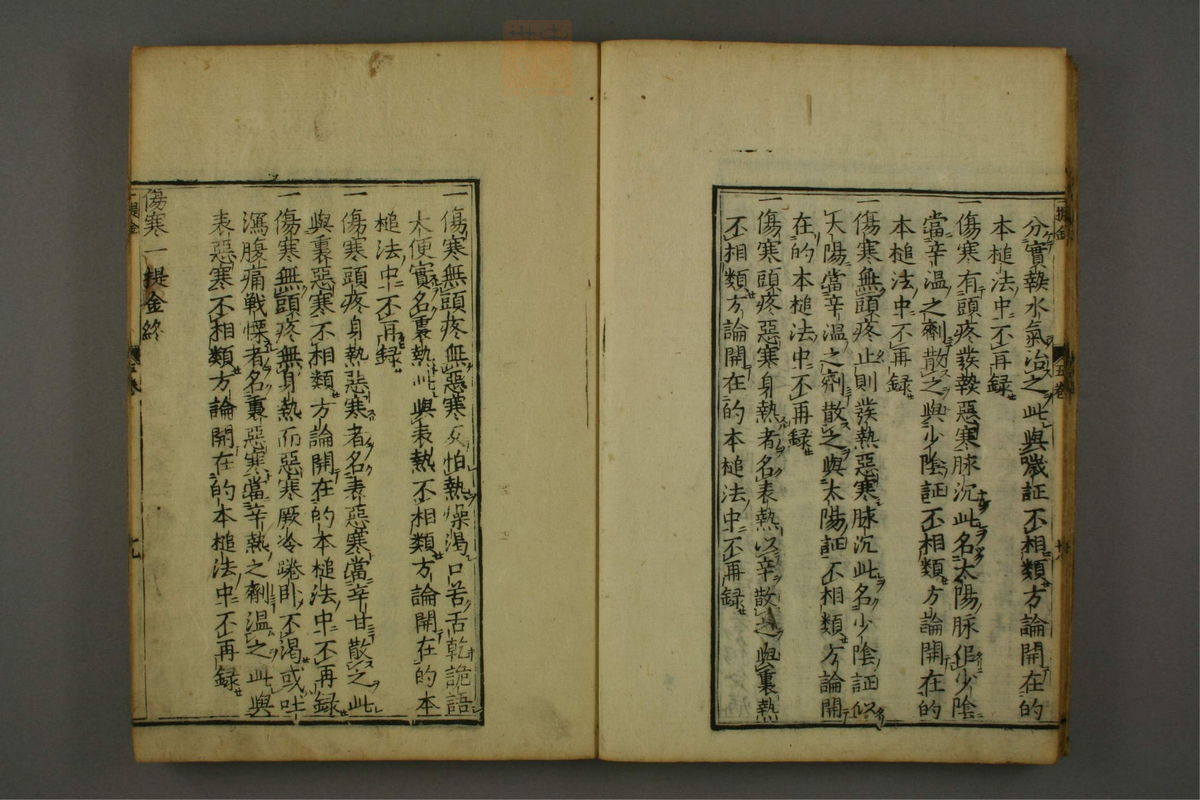 分實熱水氣治之此與驚証不相類方論開在的
本槌法中不再録
一傷寒有頭疼發熱惡寒脉沉此名太陽脉似少陰
當辛温之劑散之與少陰証不相類方論開在的
本槌法中不再録
一傷寒無頭疼止則發熱惡寒脉沉此名少陰証似
太陽當辛温之劑散之與太陽証不相類方論開
在的本槌法中不再録
一傷寒頭疼惡寒身熱者名表熱以辛散之與裏熱
不相類方論開在的本槌法中不再録
一傷寒無頭疼無惡寒反怕熱燥渴口苦舌乾詭語
大便實名裏熱此與表熱不相類方論開在的本
槌法中不再録
一傷寒頭疼身熱惡寒者名表惡寒當辛甘散之此
與裏惡寒不相類方論開在的本槌法中不再録
一傷寒無頭疼無身熱而惡寒厥冷踡卧不渴或吐
瀉腹痛戰慄者名裏惡寒當辛熱之劑温之此與
表惡寒不相類方論開在的本槌法中不再録
傷寒一提金終